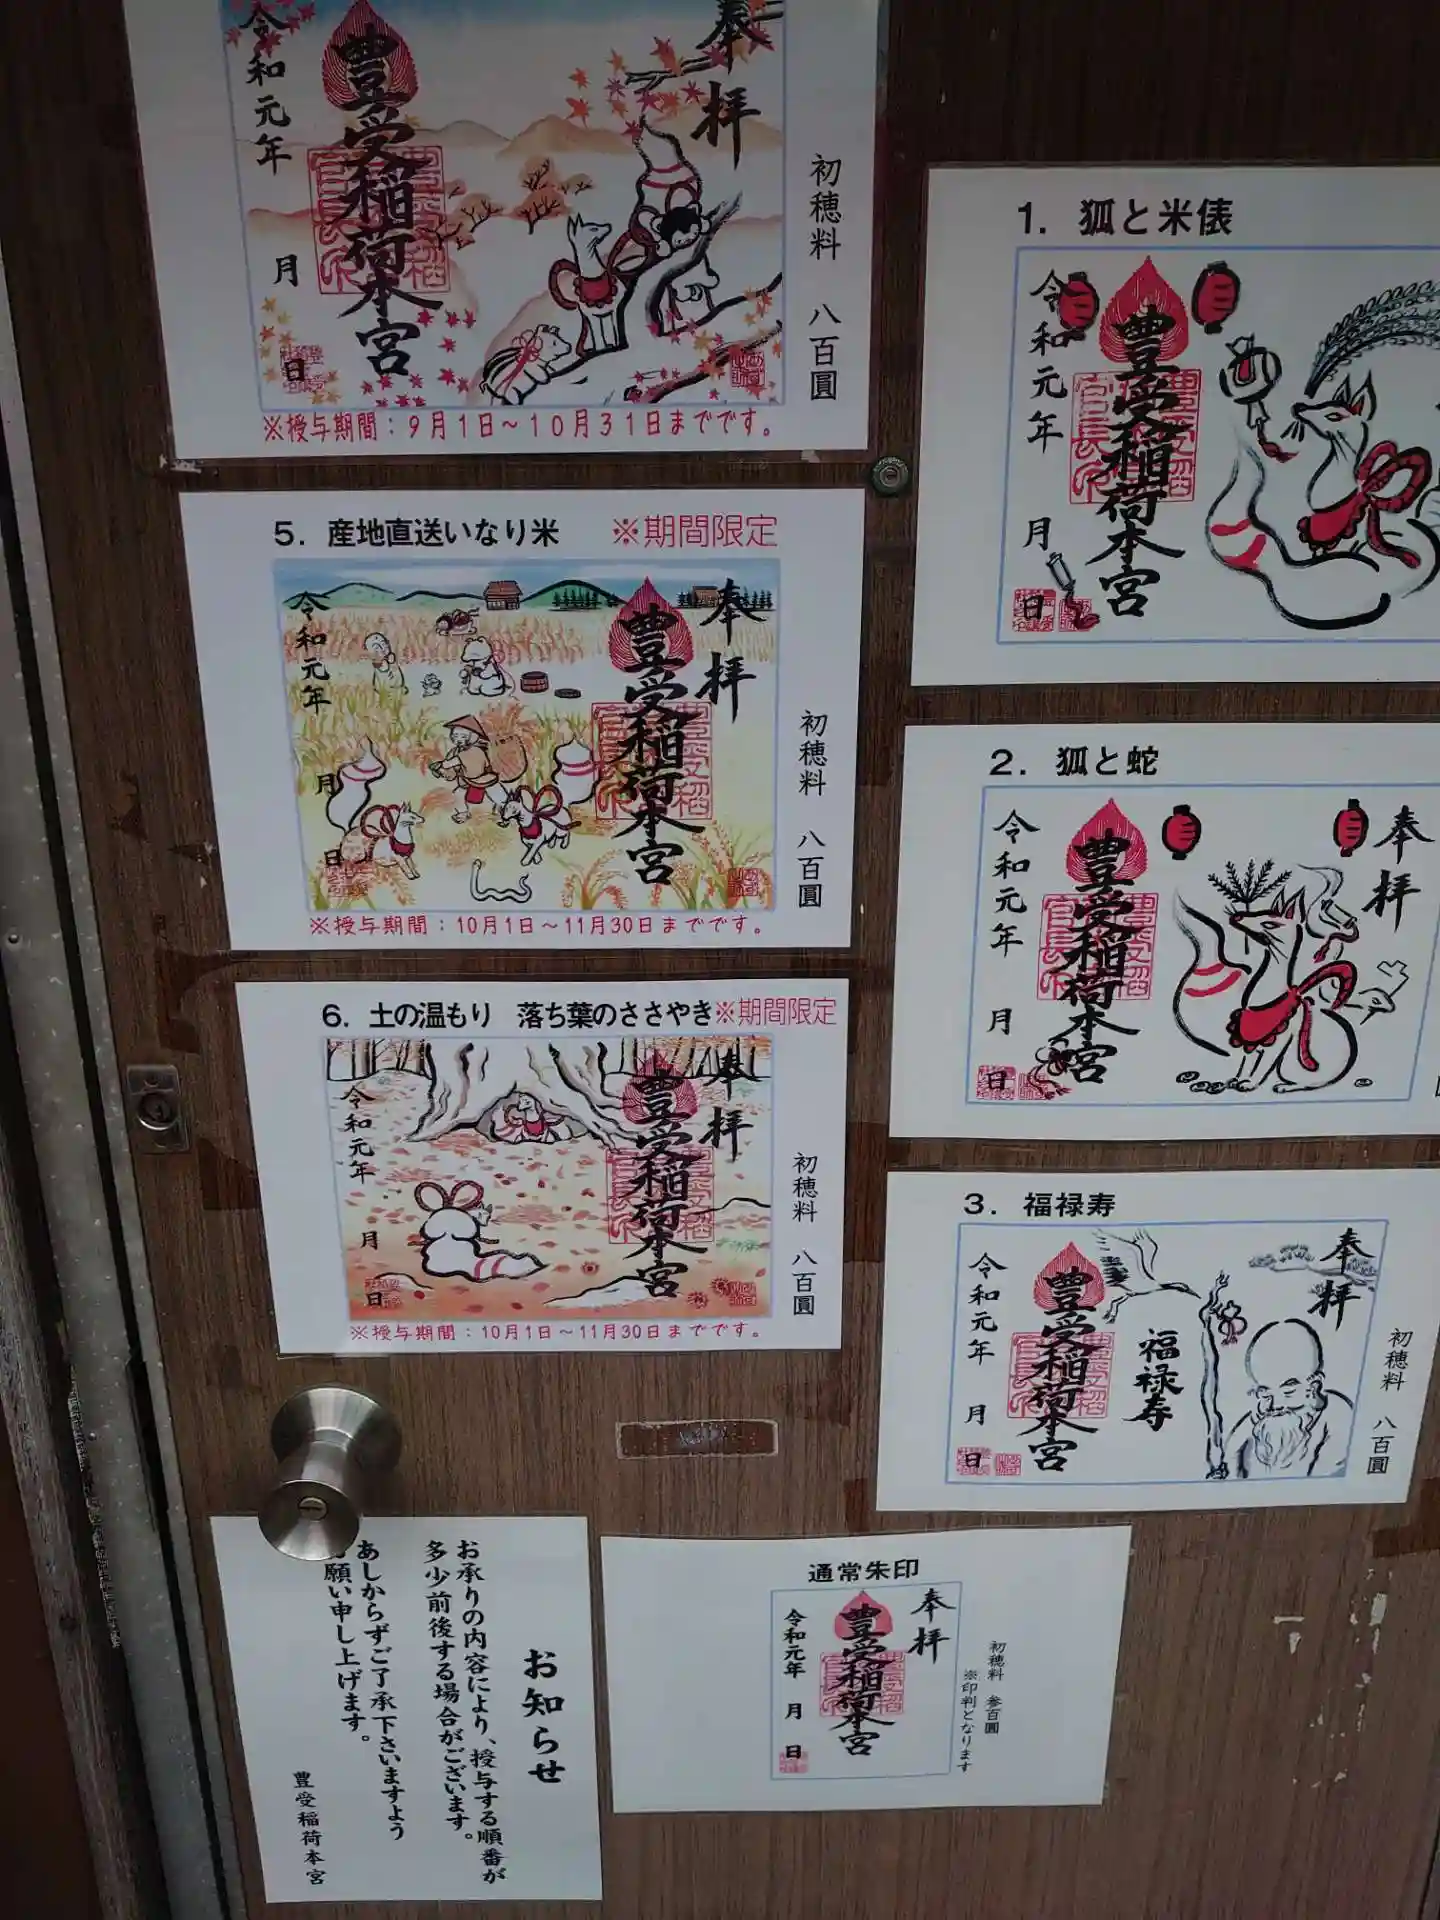 奉拝
豊受稲荷本宮
令和元年
月
日
初穂料 八百圓
※授与期間：9月1日～10月31日までです。
5. 産地直送いなり米 ※期間限定
奉拝
豊受稲荷本宮
令和元年
月
日
初穂料 八百圓
※授与期間：10月1日～11月30日までです。
6. 土の温もり 落ち葉のささやき※期間限定
奉拝
豊受稲荷本宮
令和元年
月
日
初穂料 八百圓
※授与期間：10月1日～11月30日までです。
1. 狐と米俵
豊受稲荷本宮
令和元年
月
日
2. 狐と蛇
奉拝
豊受稲荷本宮
令和元年
月
日
3. 福禄寿
奉拝
福禄寿
豊受稲荷本宮
令和元年
月
日
初穂料 八百圓
お知らせ
お承りの内容により、授与する順番が
多少前後する場合がございます。
あしからずご了承下さいますよう
願い申し上げます。
豊受稲荷本宮
通常朱印
奉拝
豊受稲荷本宮
令和元年
月
日
初穂料 参百圓
※印判となります